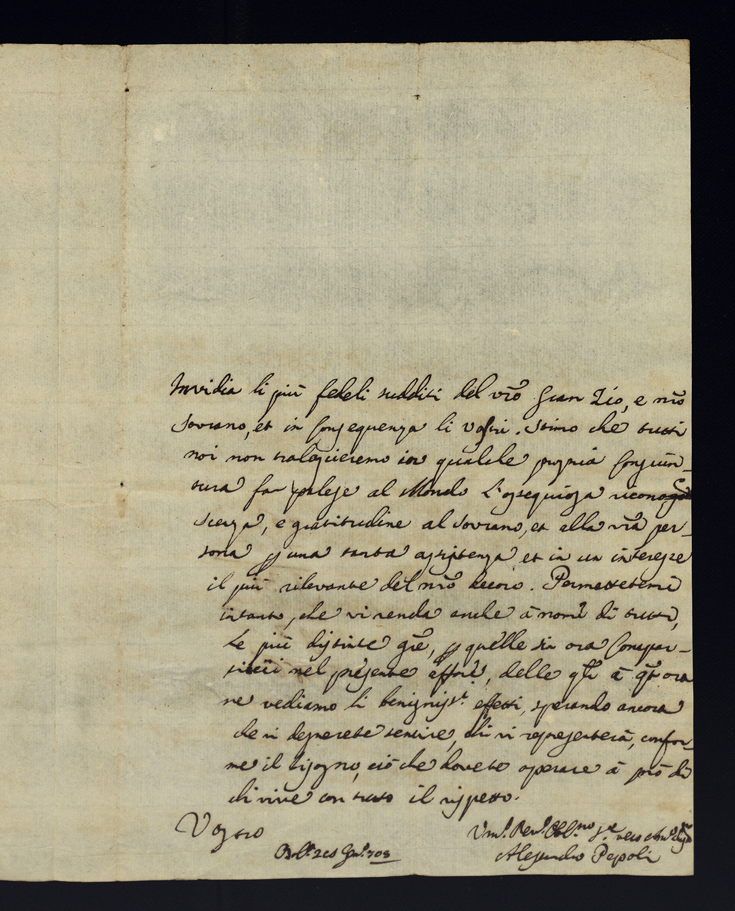 Invidia li più fedeli sudditi del vrō Gran Zio, e nrō
Sovrano, et in Conseguenza li Vostri. Stimo che tutti
noi non tralascieremo in qualche propria Congiun-
tura far palese al Mondo l'ossequiosa ricono
scenza, e gratitudine al Sovrano, et alla vrā per-
sona p una tanta assistenza et in un interesse
il più rilevante del nrō decoro. Permettetemi
intanto, che vi renda anche à nome di tutti,
le più distinte grē, p quelle sin ora Compar-
titeci nel presente affare, delle qli à qst ora
ne vediamo li benigniss.i effetti, sperando ancora
che vi degnerete sentire, chi vi representerà, confor-
me il bisogno, ciò che dovete operare à prò di
chi vive con tutto il rispetto.
Vostro
Alessandro Pepoli